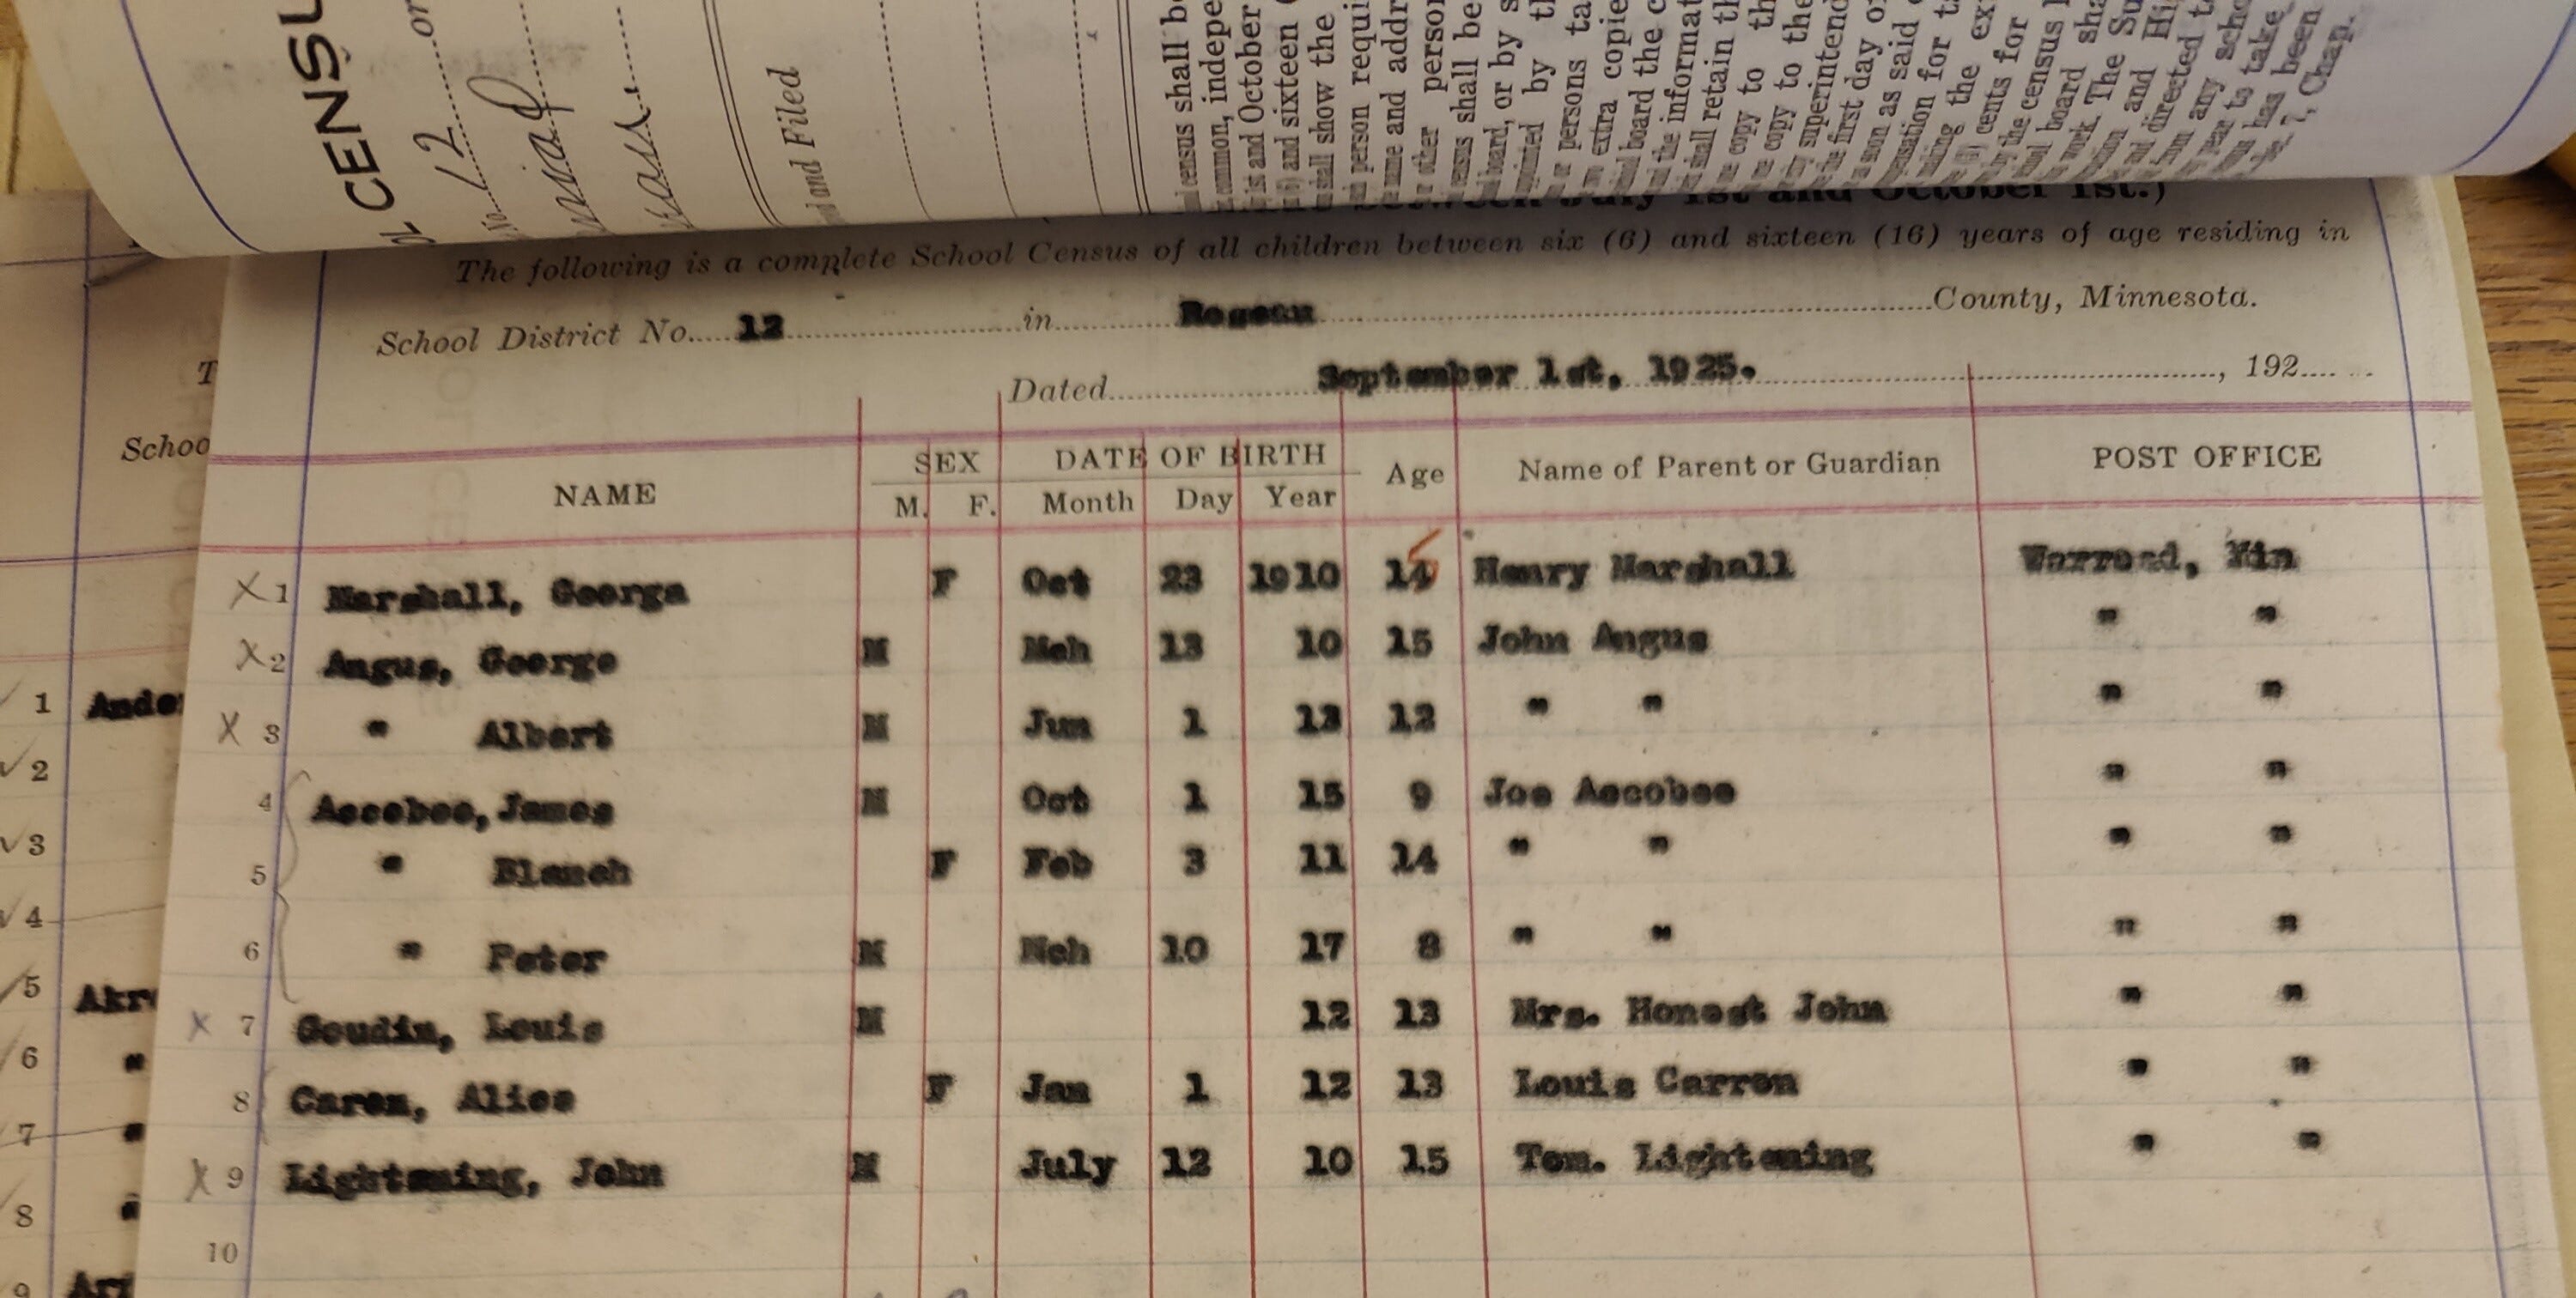 L CENSU
OL
No. 12 or
and Filed
census shall be
common, indepe
is and October
and sixteen (
shall show the
person requi
name and addr
other person
census shall be
board, or by s
by th
or persons ta
extra copie
board the c
the informat
shall retain th
copy to th
copy to the
superintend
first day of
soon as said
pensation for ta
making the ex
cents for
by the census
board sha
work. The Su
and Hi
and directed t
from any scho
year to take
has been
7, Chap.
between July 1st and October 1st.)
The following is a complete School Census of all children between six (6) and sixteen (16) years of age residing in
School District No. 12 in Roseau County, Minnesota.
Dated September 1st, 1925. , 192
NAME SEX M. F. DATE OF BIRTH Month Day Year Age Name of Parent or Guardian POST OFFICE
X 1 Marshall, Georga F Oct 23 1910 14 Henry Marshall Warroad, Min
X 2 Angus, George M Mch 13 10 15 John Angus " "
X 3 " Albert M Jun 1 13 12 " " " "
4 Ascobee, James M Oct 1 15 9 Joe Ascobee " "
5 " Blanch F Feb 3 11 14 " " " "
6 " Peter M Mch 10 17 8 " " " "
X 7 Goudin, Louis M 12 13 Mrs. Honest John " "
8 Caren, Alice F Jan 1 12 13 Louis Carron " "
X 9 Lightening, John M July 12 10 15 Tom. Lightening " "
10
T
Schoo
1 Ande
2
3
4
5 Akre
6 "
7 "
8 "
9